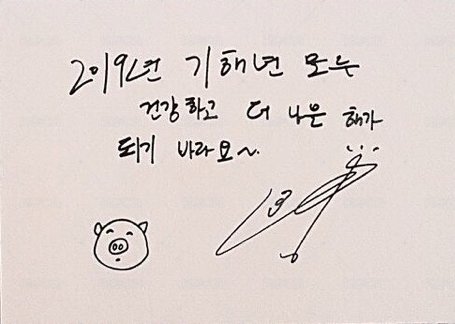 2019년 기해년 모든
건강하고 더 나은 해가
되기 바라요~